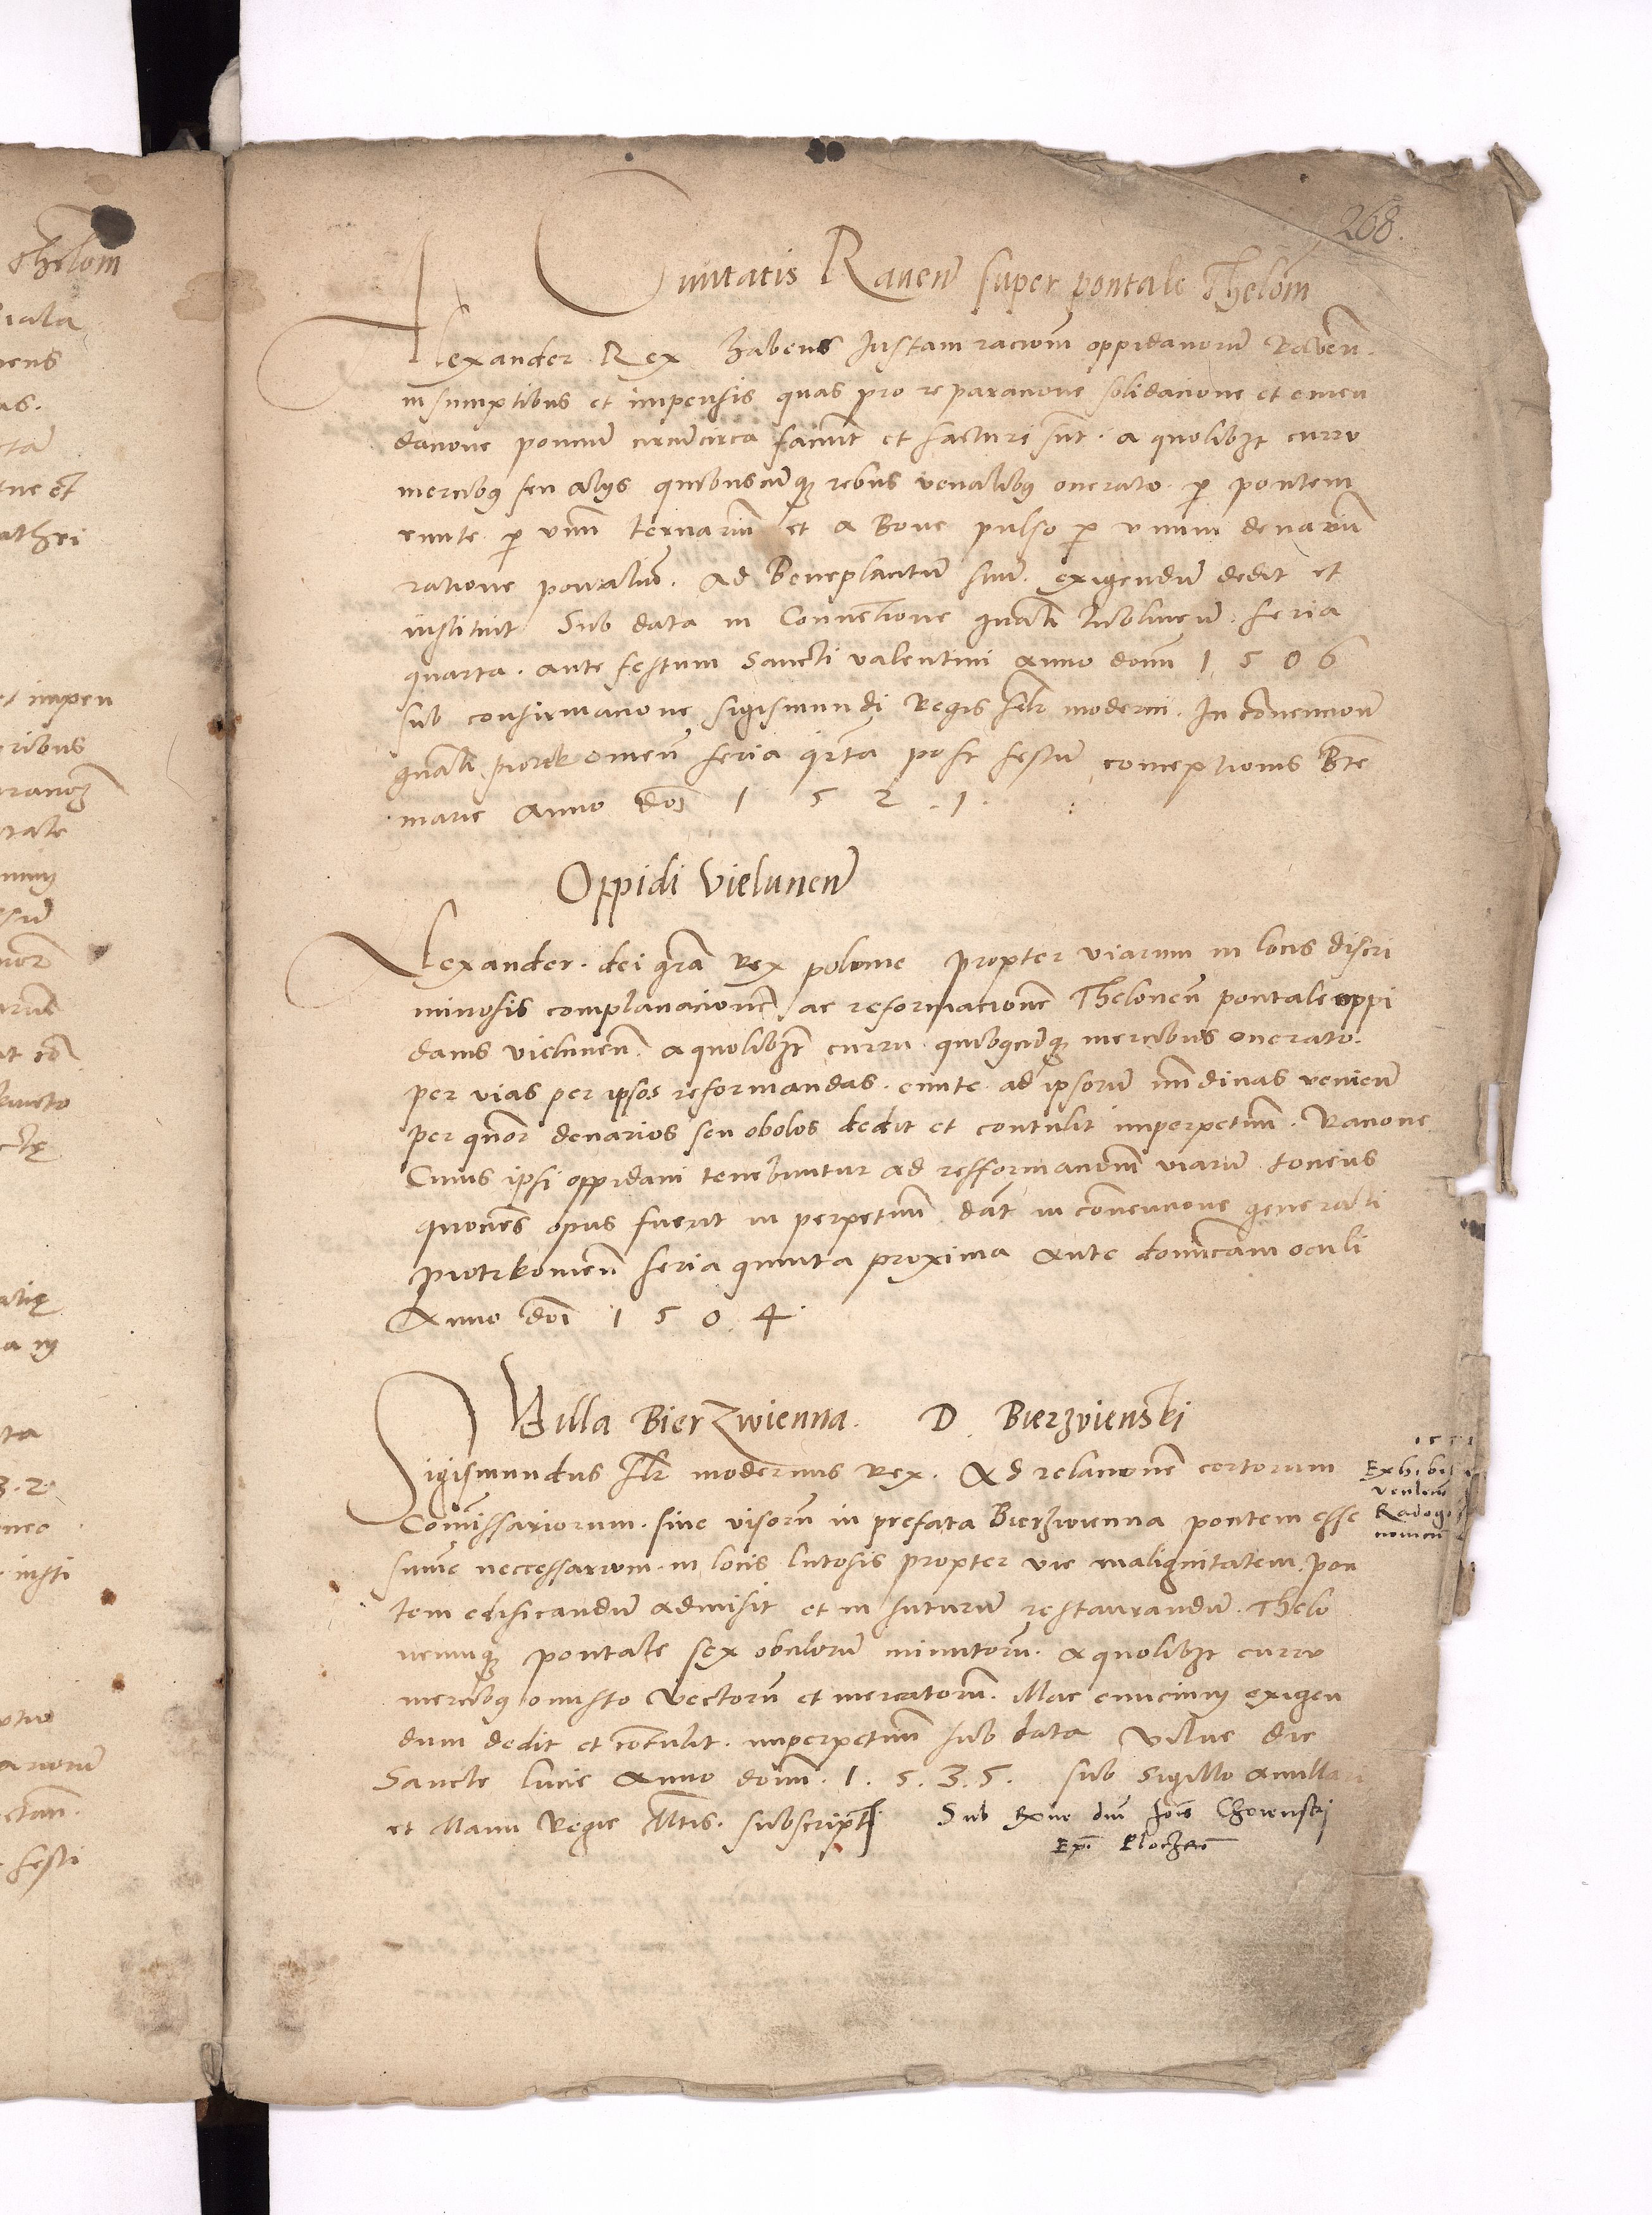 268.
Civitatis Raven̄ super pontale Thelom
Alexander Rex habens Justam racionē oppidanorū Raven̄.
in sumptibus et impensis quas pro reparacione solidacione et emen
dacione poncium circūcirca faciūt et facturi sūt. a quolibȝt curru
mercibꝫ seu alijs quibuscūqꝫ rebus venalibꝫ onerato. ꝑ pontem
eunte ꝑ vnū ternariū et a Bove pulso ꝑ vnum denariū
ratione pontaliū. ad Beneplacitū suū. exigendū dedit et
instituit Sub data in Conventione gnāli lublinen̄ feria
quarta. ante festum Sancti valentini anno domi 1506
sub confirmacione Sigismundi Regis fel̄r moderni. In cōvencionē
gnāli piotrkomen̄ feria qrta post festū conceptionis Bte
marie Anno doi 1 5 2. 1.
Oppidi Vielunen̄
Alexander. dei gra Rex polonie propter viarum in locis discri
minosis complanacionē ac reformacionē Theloneū pontale oppi
danis vielunen̄. a quolibȝt curru quibꝫcūqꝫ mercibus onerato.
per vias per ipsos reformandas. eunte ad ipsorū nūdinas venien̄
per qnor denarios seu obolos dedit et contulit inperpetuū. Racione
Cuius ipsi oppidani tenebuntur ad refformacionē viarū tociens
quociēs opus fuerit in perpetuū. dat̄ in cōvencione generali
piotrkomien̄ feria quinta proxima ante dominicam oculi
Anno doi 1 5 0. 4
Villa BierZwienna. D. Bierzvienski
Sigismundus fel̄r modernus Rex. Ad relacionē certorum
Comissariorum. sive visorū in prefata Bierzwienna pontem esse
sūme neccessarium. in locis lutosis propter vie malignitatem. pon
tem edificandū admisit et in futurū restaurandū. Thelo
neumqꝫ pontale sex obulorū minutorū. a quolibȝt curru
mercibꝫ onusto vectorū et mercatorū. Hac enucium exigen
dum dedit et cōtulit. inperpetuū sub data Vilne die
Sancte lucie Anno domi. 1. 5. 3. 5. sub Sigillo anullari
et Manu Regie Mtis. subscript
Sub Rone dni Jois Choienski
Epi Plocen̄
Exhibit